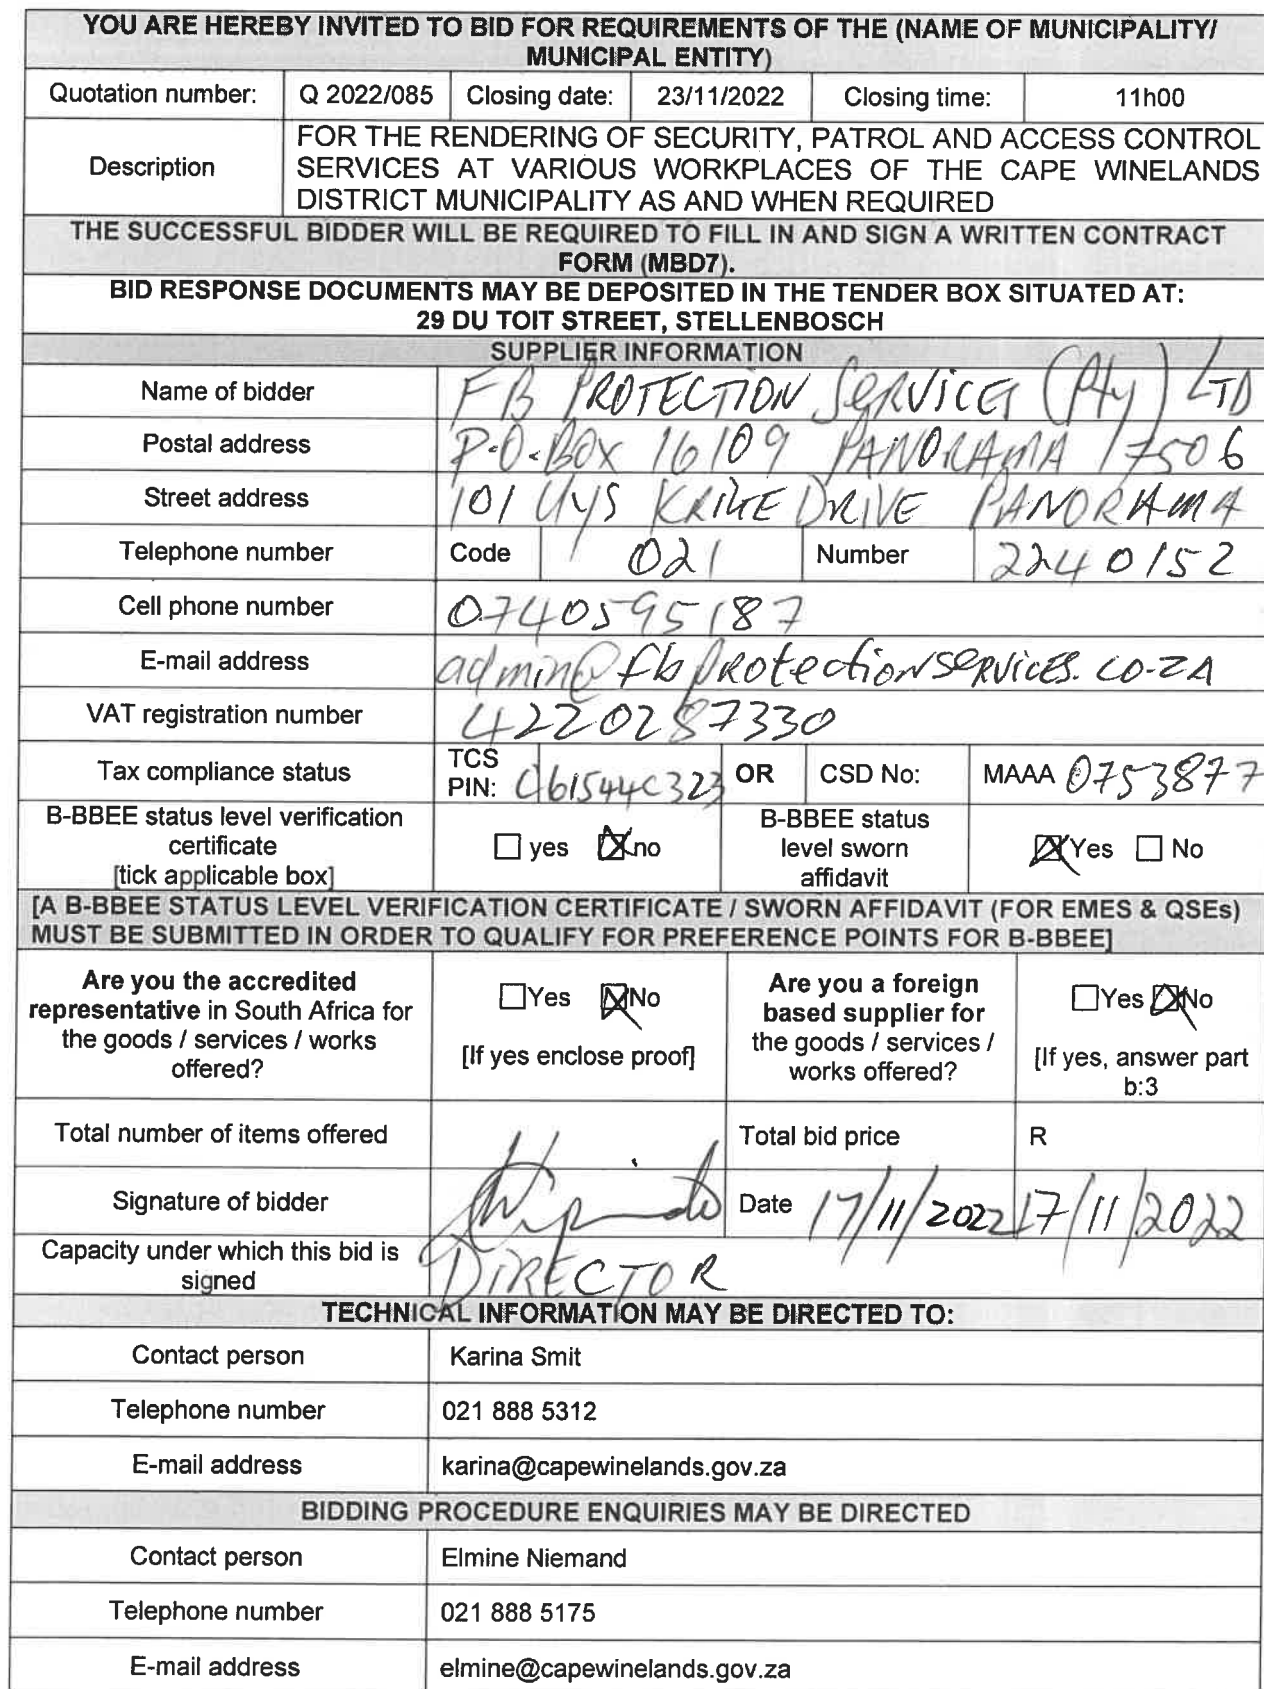 YOU ARE HEREBY INVITED TO BID FOR REQUIREMENTS OF THE (NAME OF MUNICIPALITY/
MUNICIPAL ENTITY)
Quotation number: Q 2022/085 Closing date: 23/11/2022 Closing time: 11h00
Description
FOR THE RENDERING OF SECURITY, PATROL AND ACCESS CONTROL
SERVICES AT VARIOUS WORKPLACES OF THE CAPE WINELANDS
DISTRICT MUNICIPALITY AS AND WHEN REQUIRED
THE SUCCESSFUL BIDDER WILL BE REQUIRED TO FILL IN AND SIGN A WRITTEN CONTRACT
FORM (MBD7).
BID RESPONSE DOCUMENTS MAY BE DEPOSITED IN THE TENDER BOX SITUATED AT:
29 DU TOIT STREET, STELLENBOSCH
SUPPLIER INFORMATION
Name of bidder FB PROTECTION SERVICES (Pty) LTD
Postal address P.O.BOX 16109 PANORAMA 7506
Street address 101 UYS KRIGE DRIVE PANORAMA
Telephone number Code 021 Number 2240152
Cell phone number 0740595187
E-mail address admin@fbprotectionservices.co.za
VAT registration number 4220287330
Tax compliance status TCS PIN: C61544C323 OR CSD No: MAAA 0753877
B-BBEE status level verification
certificate
[tick applicable box]
yes no
B-BBEE status
level sworn
affidavit
Yes No
[A B-BBEE STATUS LEVEL VERIFICATION CERTIFICATE / SWORN AFFIDAVIT (FOR EMES & QSEs)
MUST BE SUBMITTED IN ORDER TO QUALIFY FOR PREFERENCE POINTS FOR B-BBEE]
Are you the accredited
representative in South Africa for
the goods / services / works
offered?
Yes No
[If yes enclose proof]
Are you a foreign
based supplier for
the goods / services /
works offered?
Yes No
[If yes, answer part
b:3
Total number of items offered Total bid price R
Signature of bidder Date 17/11/2022 17/11/2022
Capacity under which this bid is
signed
DIRECTOR
TECHNICAL INFORMATION MAY BE DIRECTED TO:
Contact person Karina Smit
Telephone number 021 888 5312
E-mail address karina@capewinelands.gov.za
BIDDING PROCEDURE ENQUIRIES MAY BE DIRECTED
Contact person Elmine Niemand
Telephone number 021 888 5175
E-mail address elmine@capewinelands.gov.za